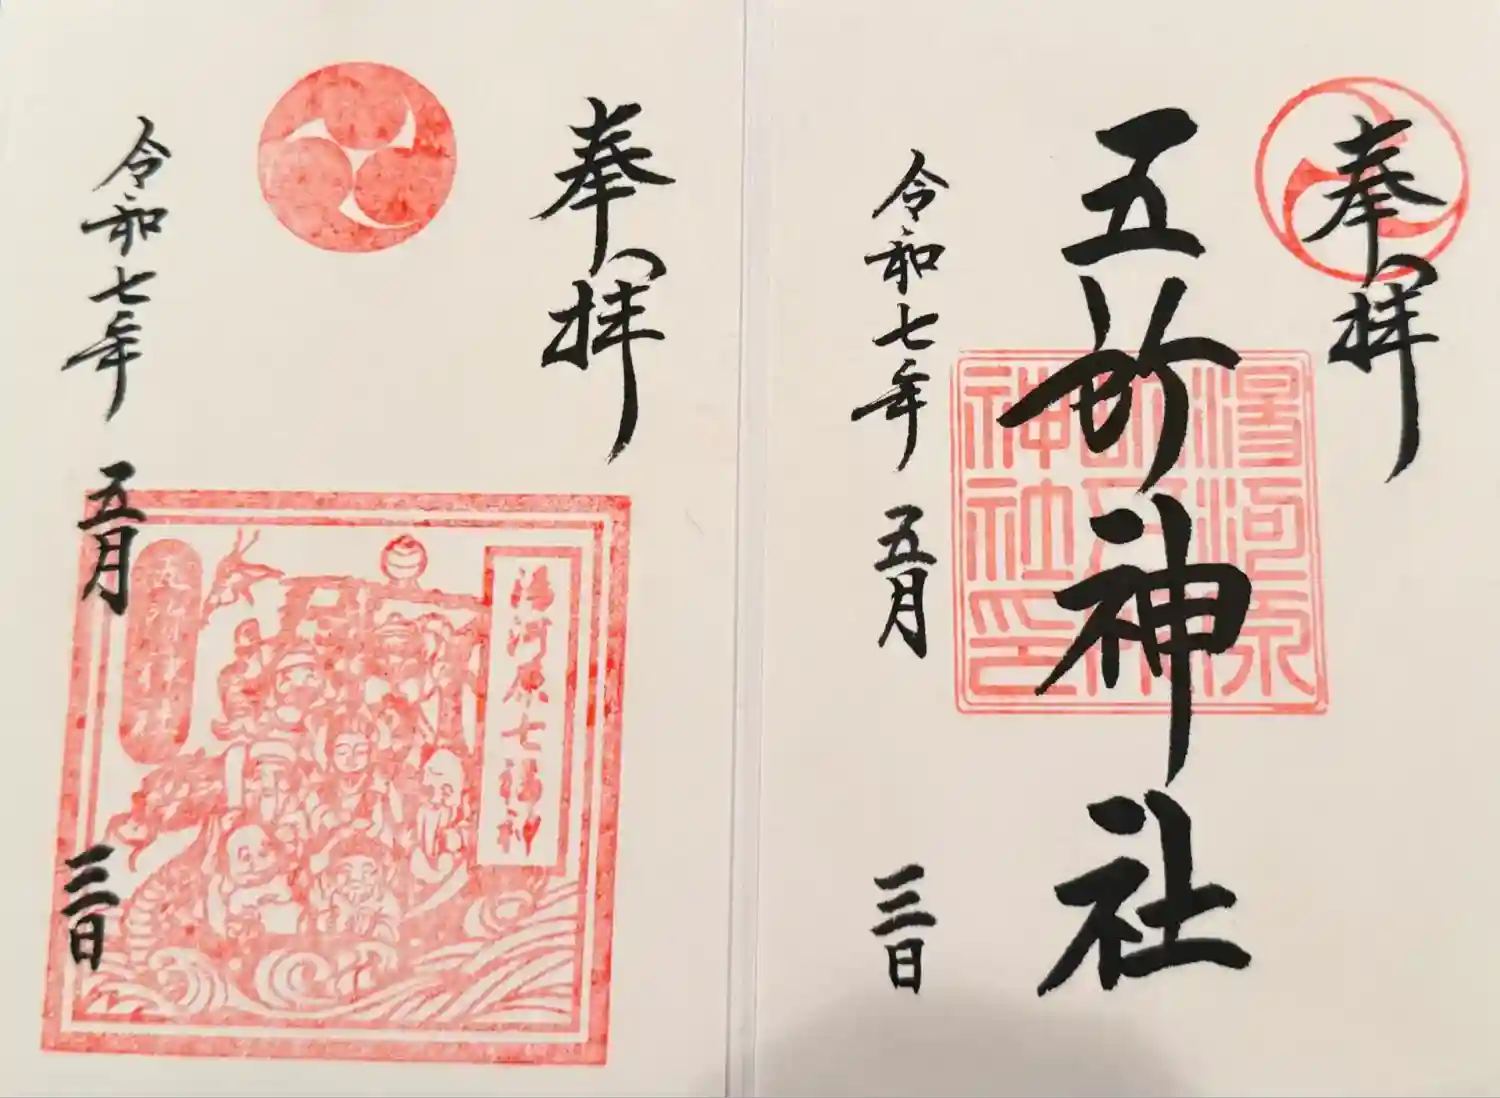 奉拝
五所神社
湯河原
五所神
社印
令和七年 五月 三日
奉拝
湯河原七福神
五所神社
令和七年 五月 三日